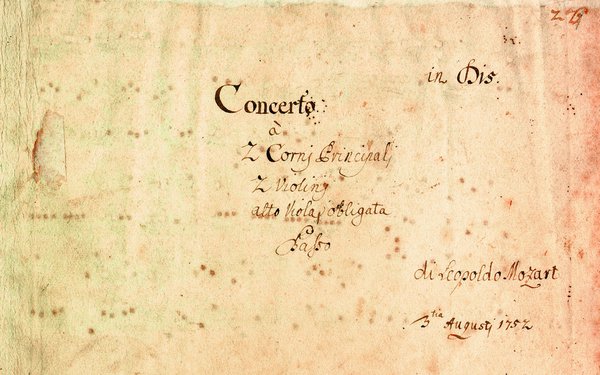 in Dis.
Concerto.
à
2 Cornj Principalj
2 Violinj
alto Viola obligata
Basso
di Leopoldo Mozart
3tia Augustj 1752